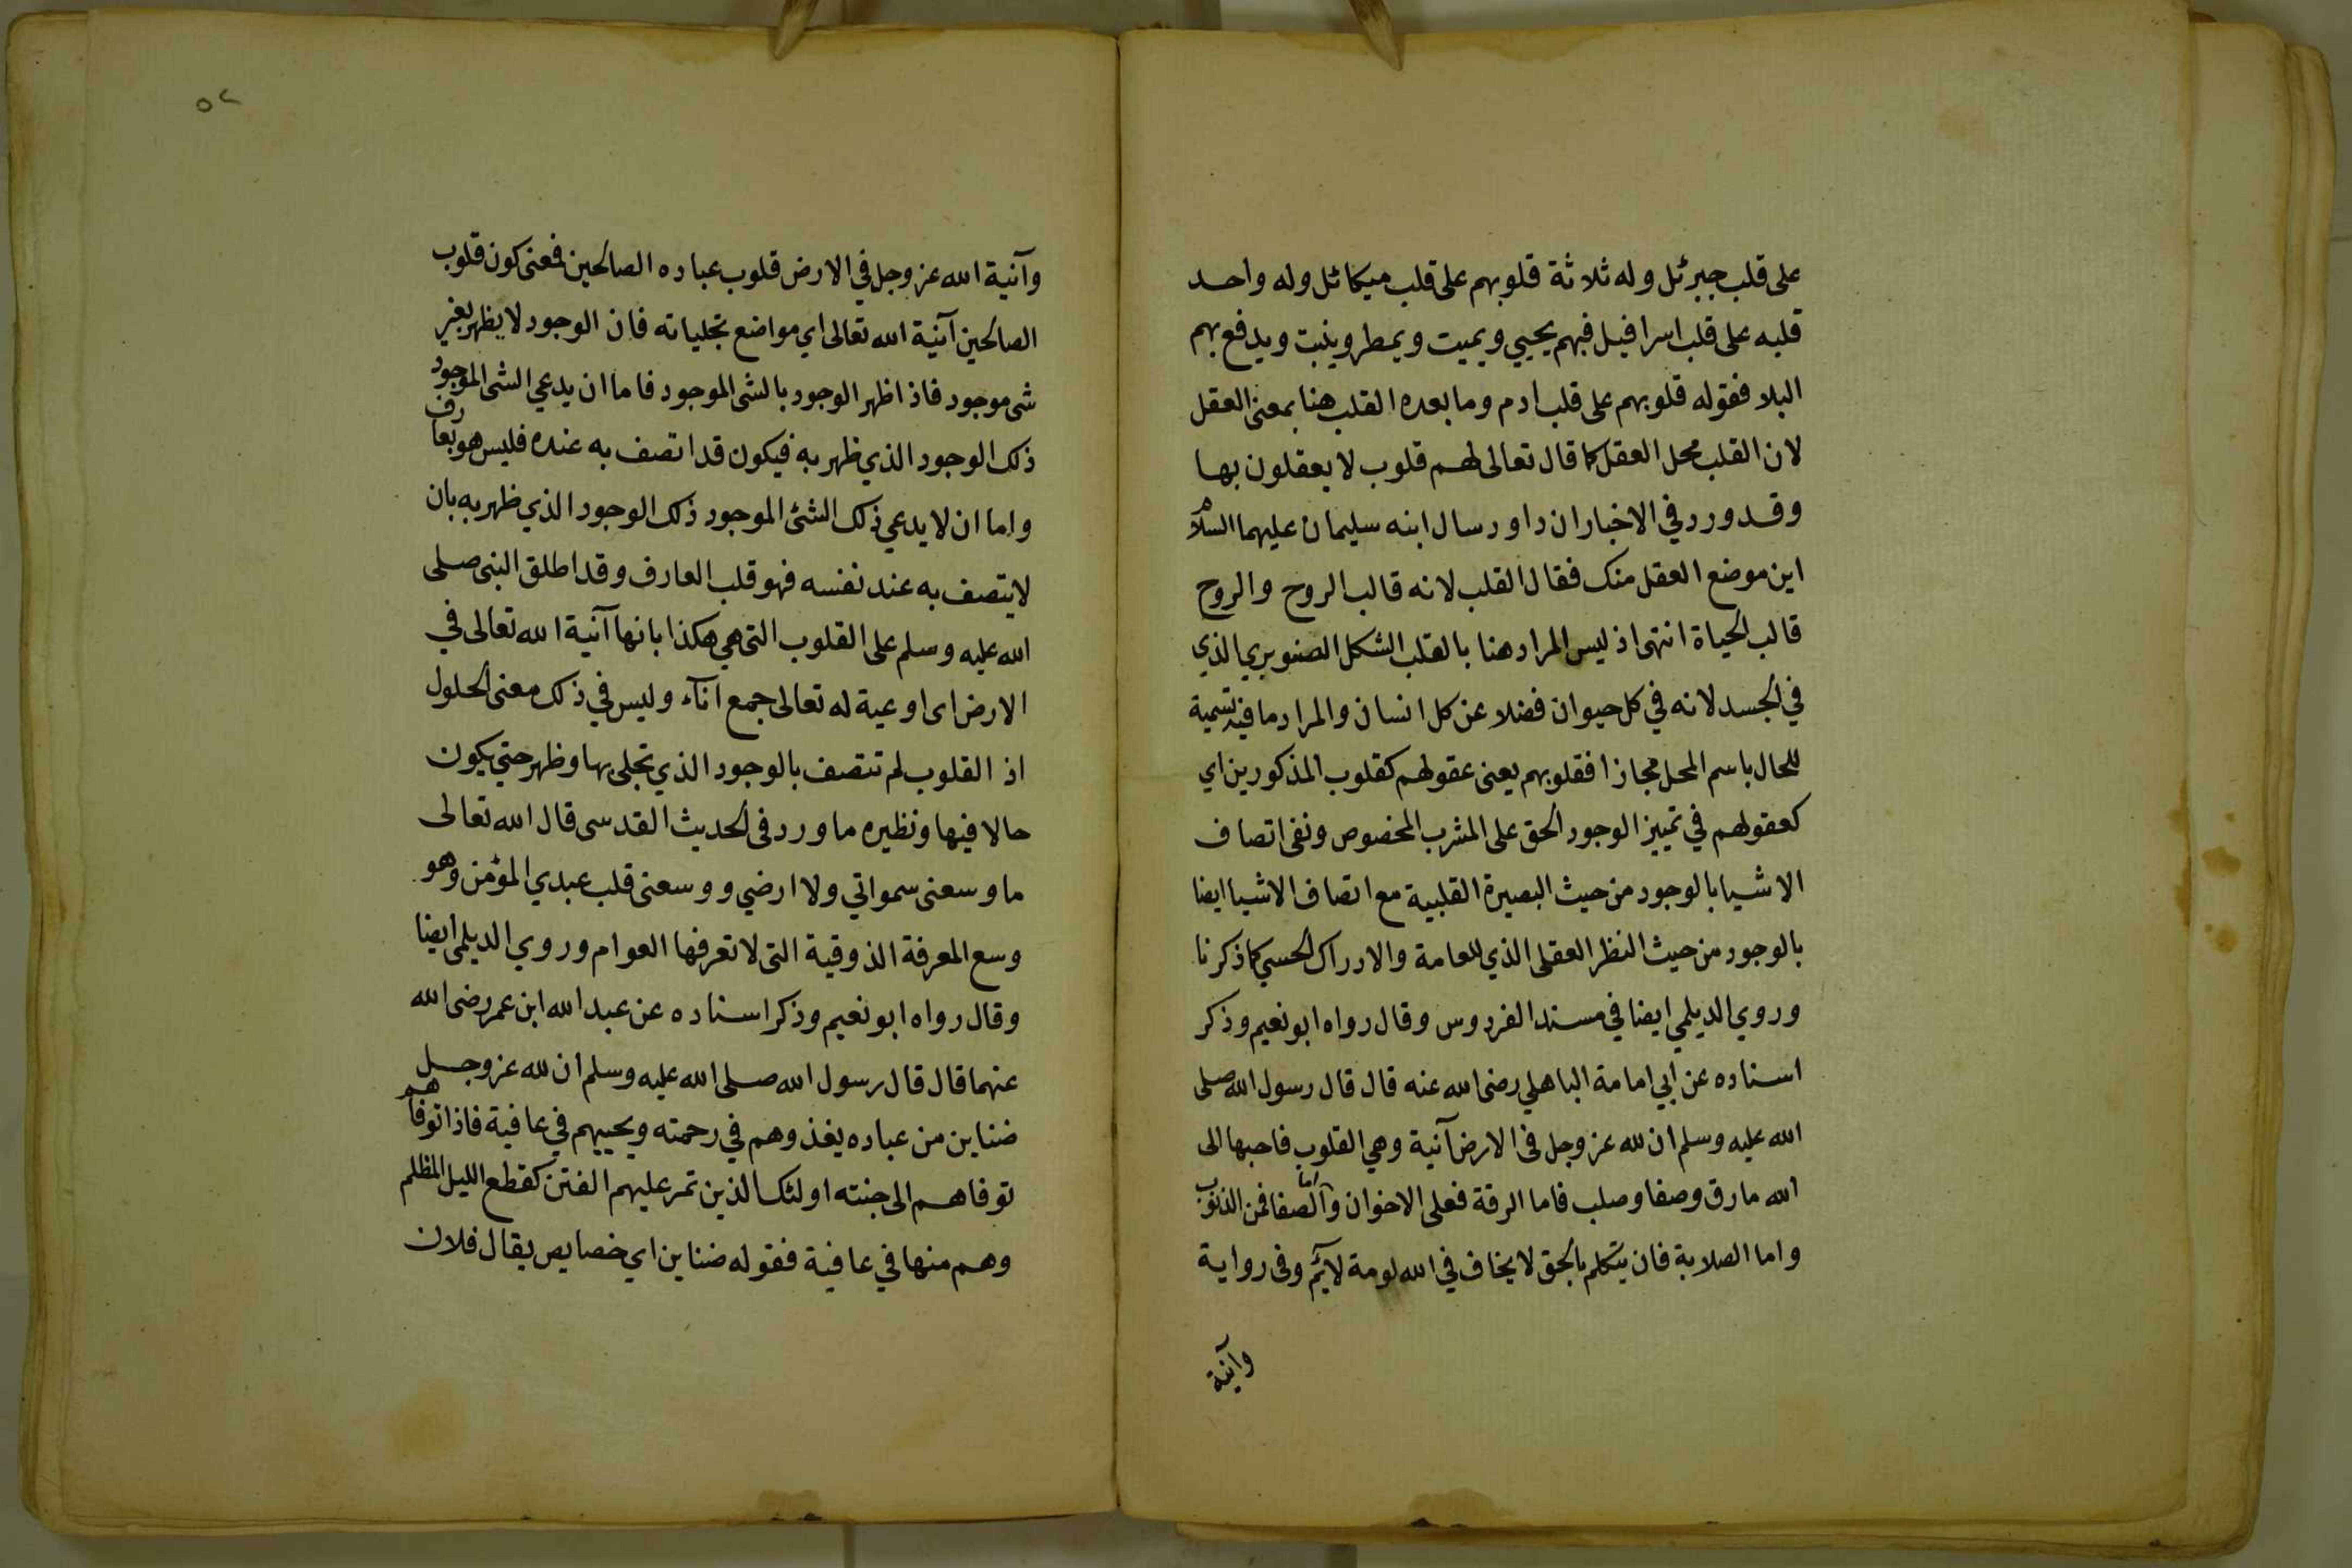 على قلب جبرئل وله ثلاثة قلوبهم على قلب ميكائل وله واحد
قلبه على قلب اسرافيل فبهم يحيي ويميت ويمطر وينبت ويدفع بهم
البلا فقوله قلوبهم على قلب ادم وما بعده القلب هنا بمعنى العقل
لان القلب محل العقل كما قال تعالى لهم قلوب لا يعقلون بها
وقد ورد في الاخبار ان داود سال ابنه سليمان عليهما السلام
اين موضع العقل منك فقال القلب لانه قالب الروح والروح
قالب الحياة انتهى اذ ليس المراد هنا بالقلب الشكل الصنوبري الذي
في الجسد لانه في كل حيوان فضلا عن كل انسان والمراد ما فيه تسمية
للحال باسم المحل مجازا فقلوبهم يعنى عقولهم كقلوب المذكورين اي
كعقولهم في تمييز الوجود الحق على المشرب المخصوص ونفى اتصاف
الاشيا بالوجود من حيث البصيرة القلبية مع اتصاف الاشيا ايضا
بالوجود من حيث النظر العقلى الذي للعامة والادراك الحسي كما ذكرنا
وروي الديلمي ايضا في مسند الفردوس وقال رواه ابو نعيم وذكر
اسناده عن ابي امامة الباهلي رضى الله عنه قال قال رسول الله صلى
الله عليه وسلم ان لله عز وجل فى الارض آنية وهي القلوب فاحبها الى
الله ما رق وصفا وصلب فاما الرقة فعلى الاخوان واما الصفا فمن الذنوب
واما الصلابة فان يتكلم بالحق لا يخاف في الله لومة لائم وفى رواية
وآنية
٥٢
وآنية الله عز وجل في الارض قلوب عباده الصالحين فمعنى كون قلوب
الصالحين آنية الله تعالى اي مواضع تجلياته فان الوجود لا يظهر بغير
شى موجود فاذا ظهر الوجود بالشى الموجود فاما ان يدعي الشى الموجود
ذلك الوجود الذي ظهر به فيكون قد اتصف به عنده فليس هو بعارف
واما ان لا يدعي ذلك الشئ الموجود ذلك الوجود الذي ظهر به بان
لا يتصف به عند نفسه فهو قلب العارف وقد اطلق النبى صلى
الله عليه وسلم على القلوب التى هي هكذا بانها آنية الله تعالى في
الارض اى اوعية له تعالى جمع اناء وليس في ذلك معنى الحلول
اذ القلوب لم تتصف بالوجود الذي تجلى بها وظهر حتي يكون
حالا فيها ونظيره ما ورد فى الحديث القدسى قال الله تعالى
ما وسعنى سمواتي ولا ارضي ووسعنى قلب عبدي المؤمن وهو
وسع المعرفة الذوقية التى لا تعرفها العوام وروي الديلمى ايضا
وقال رواه ابو نعيم وذكر اسناده عن عبد الله ابن عمر رضى الله
عنهما قال قال رسول الله صلى الله عليه وسلم ان لله عز وجل
ضناين من عباده يغذوهم في رحمته ويحييهم في عافية فاذا توفاهم
توفاهم الى جنته اولئك الذين تمر عليهم الفتن كقطع الليل المظلم
وهم منها في عافية فقوله ضناين اي خصايص يقال فلان